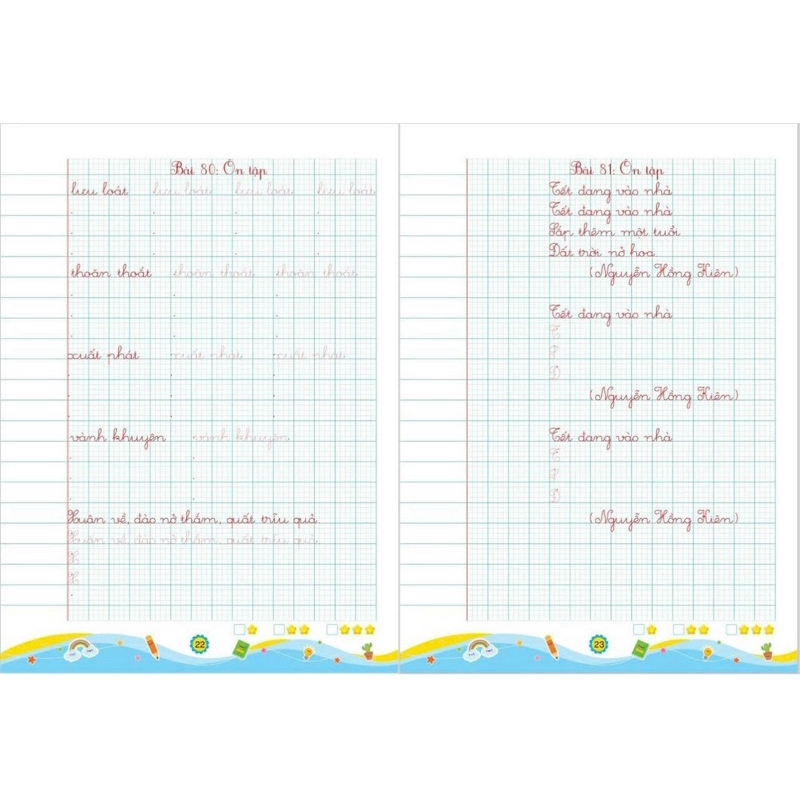 Bài 80: Ôn tập
lưu loát lưu loát lưu loát lưu loát
thoăn thoắt thoăn thoắt thoăn thoắt
xuất phát xuất phát xuất phát
vành khuyên vành khuyên
Xuân về, đào nở thắm, quất trĩu quả
Xuân về, đào nở thắm, quất trĩu quả
X
X
22
Bài 81: Ôn tập
Tết đang vào nhà
Tết đang vào nhà
Sắp thêm một tuổi
Đất trời nở hoa
(Nguyễn Hồng Kiên)
Tết đang vào nhà
Đ
(Nguyễn Hồng Kiên)
Tết đang vào nhà
Đ
(Nguyễn Hồng Kiên)
23